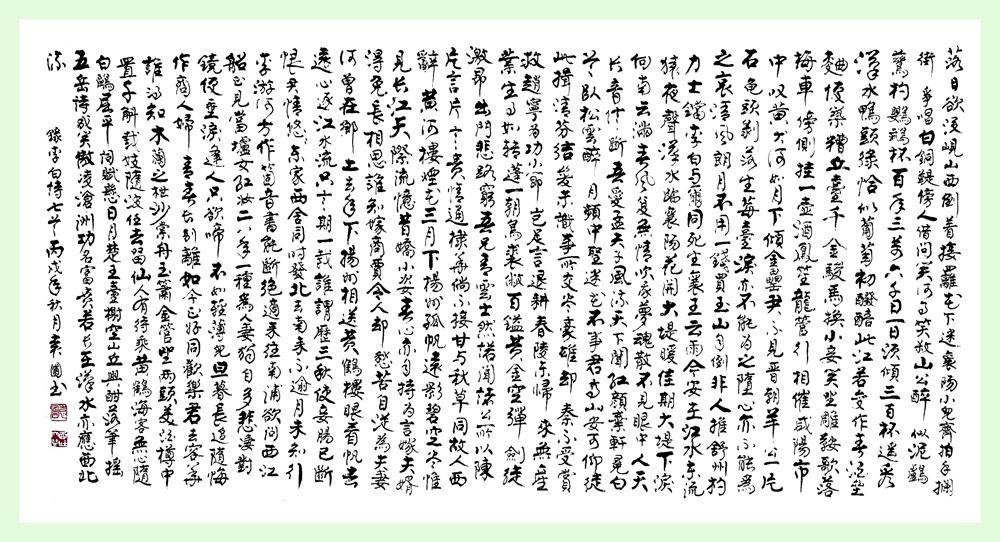 落日欲没峴山西倒着接羅花下迷襄陽小兒齊拍手攔
街爭唱白銅鞮傍人借問笑何事笑殺山公醉似泥鸕
鶿杓鸚鵡杯百年三萬六千日一日須傾三百杯遙看
漢水鴨頭綠恰似葡萄初醱醅此江若變作春酒壘
麯便築糟丘臺千金駿馬換小妾笑坐雕鞍歌落
梅車傍側挂一壺酒鳳笙龍管行相催咸陽市
中嘆黃犬何如月下傾金罍君不見晉朝羊公一片
石龜頭剝落生莓臺淚亦不能為之墮心亦不能為
之哀清風朗月不用一錢買玉山自倒非人推舒州杓
力士鐺李白與爾同死生襄王雲雨今安在江水東流
猿夜聲漢水臨襄陽花開大堤暖佳期大堤下淚
向南雲滿春風復無情吹我夢魂散不見眼中人天
長音信斷吾愛孟夫子風流天下聞紅顏棄軒冕白
首臥松雲醉月頻中聖迷花不事君高山安可仰徒
此揖清芬結髮未識事所交盡豪雄却秦不受賞
救趙寧為功小節豈足言退耕舂陵東歸來無產
業生事如轉蓬一朝烏裘敝百鎰黃金空彈劍徒
激昂出門悲路窮吾兄青雲士然諾聞諸公所以陳
片言片言貴情通棣華倘不接甘與秋草同故人西
辭黃河樓煙花三月下揚州孤帆遠影碧空盡惟
見長江天際流憶昔嬌小姿春心亦自持為言嫁夫婿
得免長相思誰知嫁商賈令人却愁苦自從為夫妻
何曾在鄉土去年下揚州相送黃鶴樓眼看帆去
遠心逐江水流只言期一載誰謂歷三秋使妾腸已斷
恨君情悠悠東家西舍同時發北去南來不逾月未知行
李游何方作箇音書能斷絕適來往南浦欲問西江
船正見當壚女紅妝二八年一種為人妻獨自多悲淒對
鏡便垂淚逢人只欲啼不如輕薄兒旦暮長追隨悔
作商人婦青春長別離如今正好同歡樂君去容華
誰得知木蘭之枻沙棠舟玉簫金管坐兩頭美酒樽中
置千斛載妓隨波任去留仙人有待乘黃鶴海客無心隨
白鷗屈平詞賦懸日月楚王臺榭空山丘興酣落筆搖
五岳詩成笑傲凌滄洲功名富貴若長在漢水亦應西北
流 錄李白詩七首丙戌年秋月袁國玉